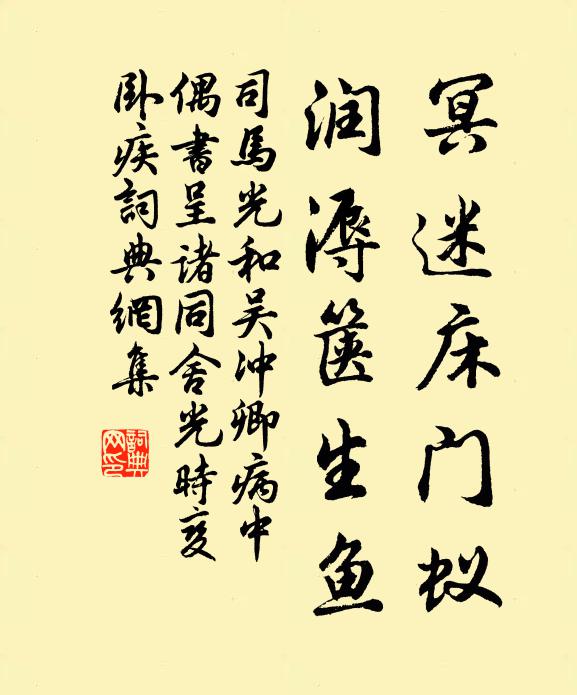 冥迷床门蚁
润溽箧生鱼
司馬光和吴冲卿病中
偶書呈诸同舍光時亦
卧疾詞典網集
詞典网印